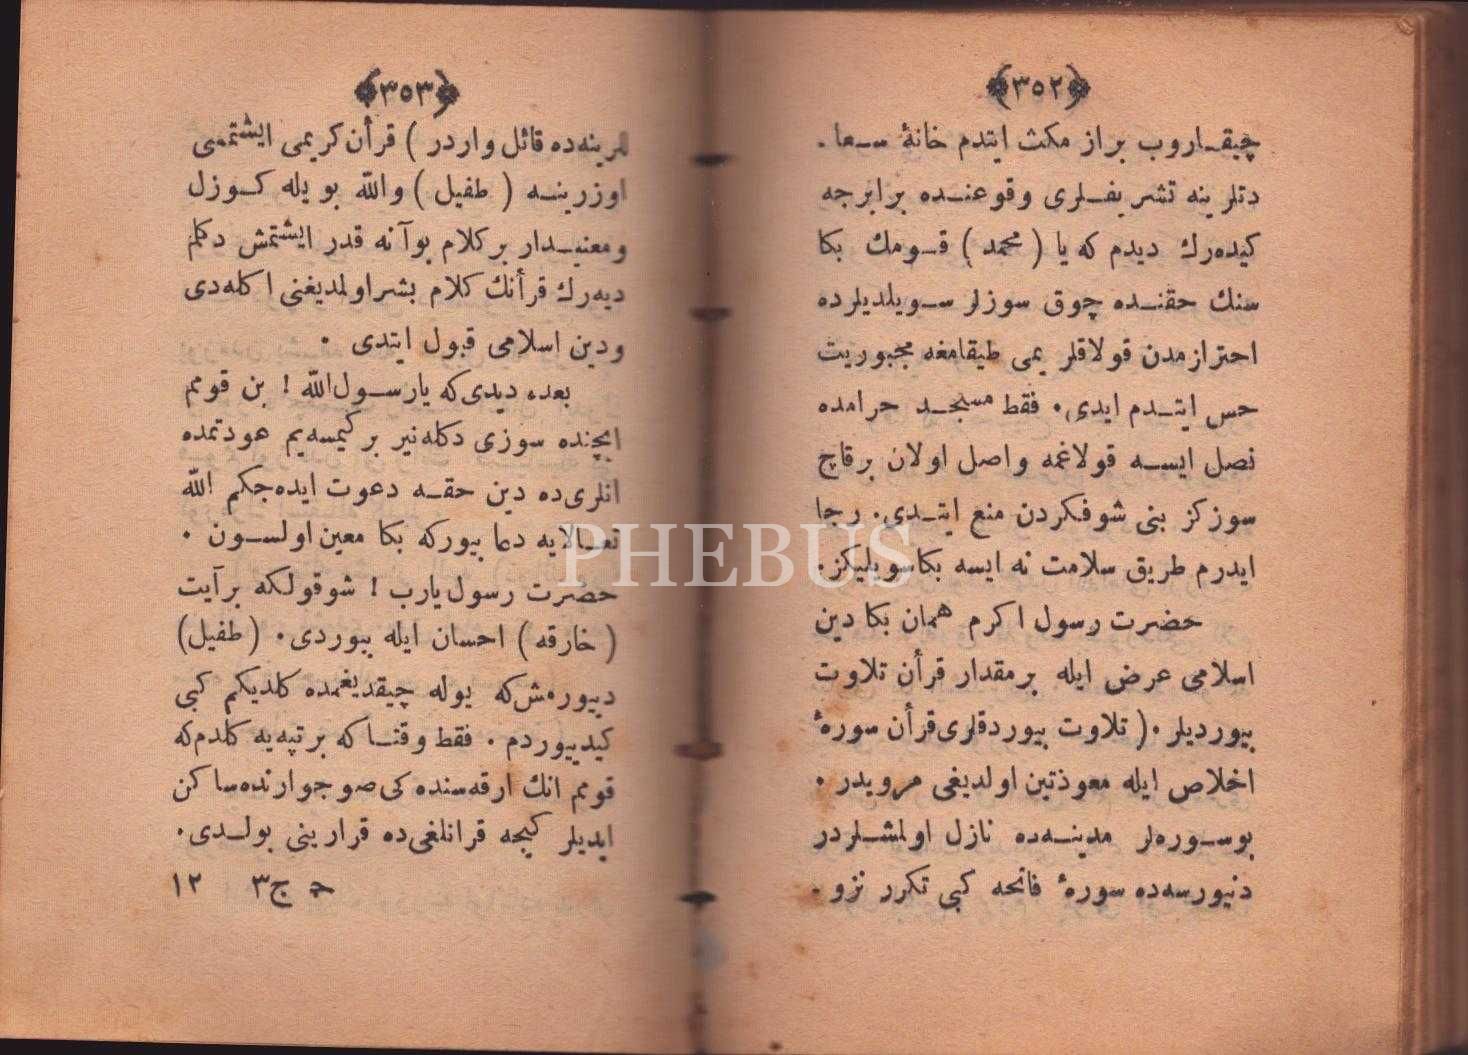 ﴿٣٥٢﴾
چیقـاروب براز مکث ایتدم خانهٔ سـعا.
دتلرینه تشریفـلری وقوعنـده برابرجه
کیده‌رك دیدم که یا ( محمد ) قـومك بکا
سنك حقنـده چوق سوزلر سـویلدیلرده
احترازمدن قولاقلریمی طیقامغه مجبوریت
حس ایتـدم ایدی. فقط مسجـد حرامده
نصل ایسـه قولاغمه واصل اولان برقاچ
سوزکز بنی شوفکردن منع ایتـدی. رجا
ایدرم طریق سلامت نه ایسه بکاسویلیکز.
حضرت رسول اکرم همان بکا دین
اسلامی عرض ایله برمقدار قرأن تلاوت
بیوردیلر.( تلاوت بیوردقلری‌قرأن سورهٔ
اخلاص ایله معوذتین اولدیغی مرویدر.
بوسـوره‌لر مدینـه‌ده نازل اولمشـلردر
دنیورسه‌ده سورهٔ فاتحه کبی تکرر نزو.
﴿٣٥٣﴾
لرینه‌ده قائل واردر ) قرأن کریمی ایشتمه‌سی
اوزرینـه ( طفیل ) والله بویله کـوزل
ومعنیـدار برکلام بوآنه قدر ایشتمش دکلم
دیه‌رك قرأنك کلام بشراولمدیغنی اکله‌دی
ودین اسلامی قبول ایتدی .
بعده دیدی‌که یارسـول‌الله ! بن قومم
ایچنده سوزی دکله‌نیر برکیمسه‌یم عودتمده
انلری‌ده دین حقـه دعوت ایده‌جکم الله
تعـالایه دعا بیورکه بکا معین اولسـون .
حضرت رسول یارب ! شوقولکه برآیت
( خارقه ) احسان ایله بیوردی. ( طفیل)
دییورمش‌که یوله چیقدیغمده کلدیکم کبی
کیدییوردم . فقط وقتـاکه برتپه‌یه کلدم‌که
قومم انك ارقه‌سنده‌کی صو جوارنده‌ساکن
ایدیلر کیجه قرانلغی‌ده قرارینی بولـدی.
ح ج ٣ ١٢
PHEBUS